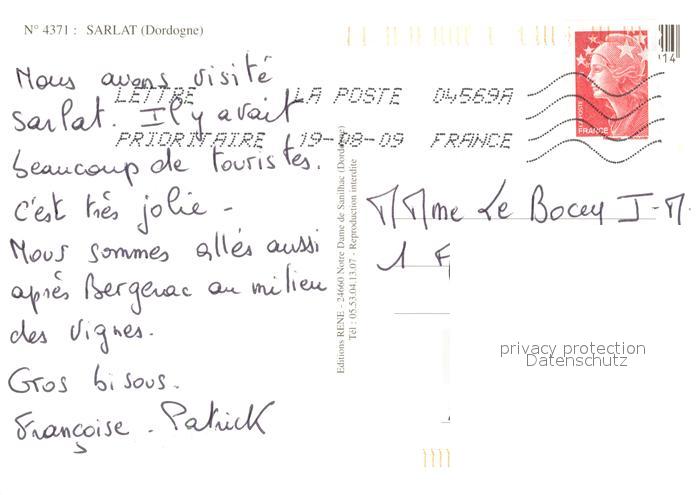 N° 4371 : SARLAT (Dordogne)
Nous avons visité
Sarlat. Il y avait
beaucoup de touristes.
C'est très jolie -
Nous sommes allés aussi
après Bergerac au milieu
des vignes.
Gros bisous.
Françoise - Patrick
LETTRE LA POSTE 04569A
PRIORITAIRE 19-08-09 FRANCE
Editions RENE - 24660 Notre Dame de Sanilhac (Dordogne)
Tél : 05.53.04.13.07 - Reproduction interdite
14
LA POSTE
FRANCE
Mme Le J-M.
1
privacy protection
Datenschutz